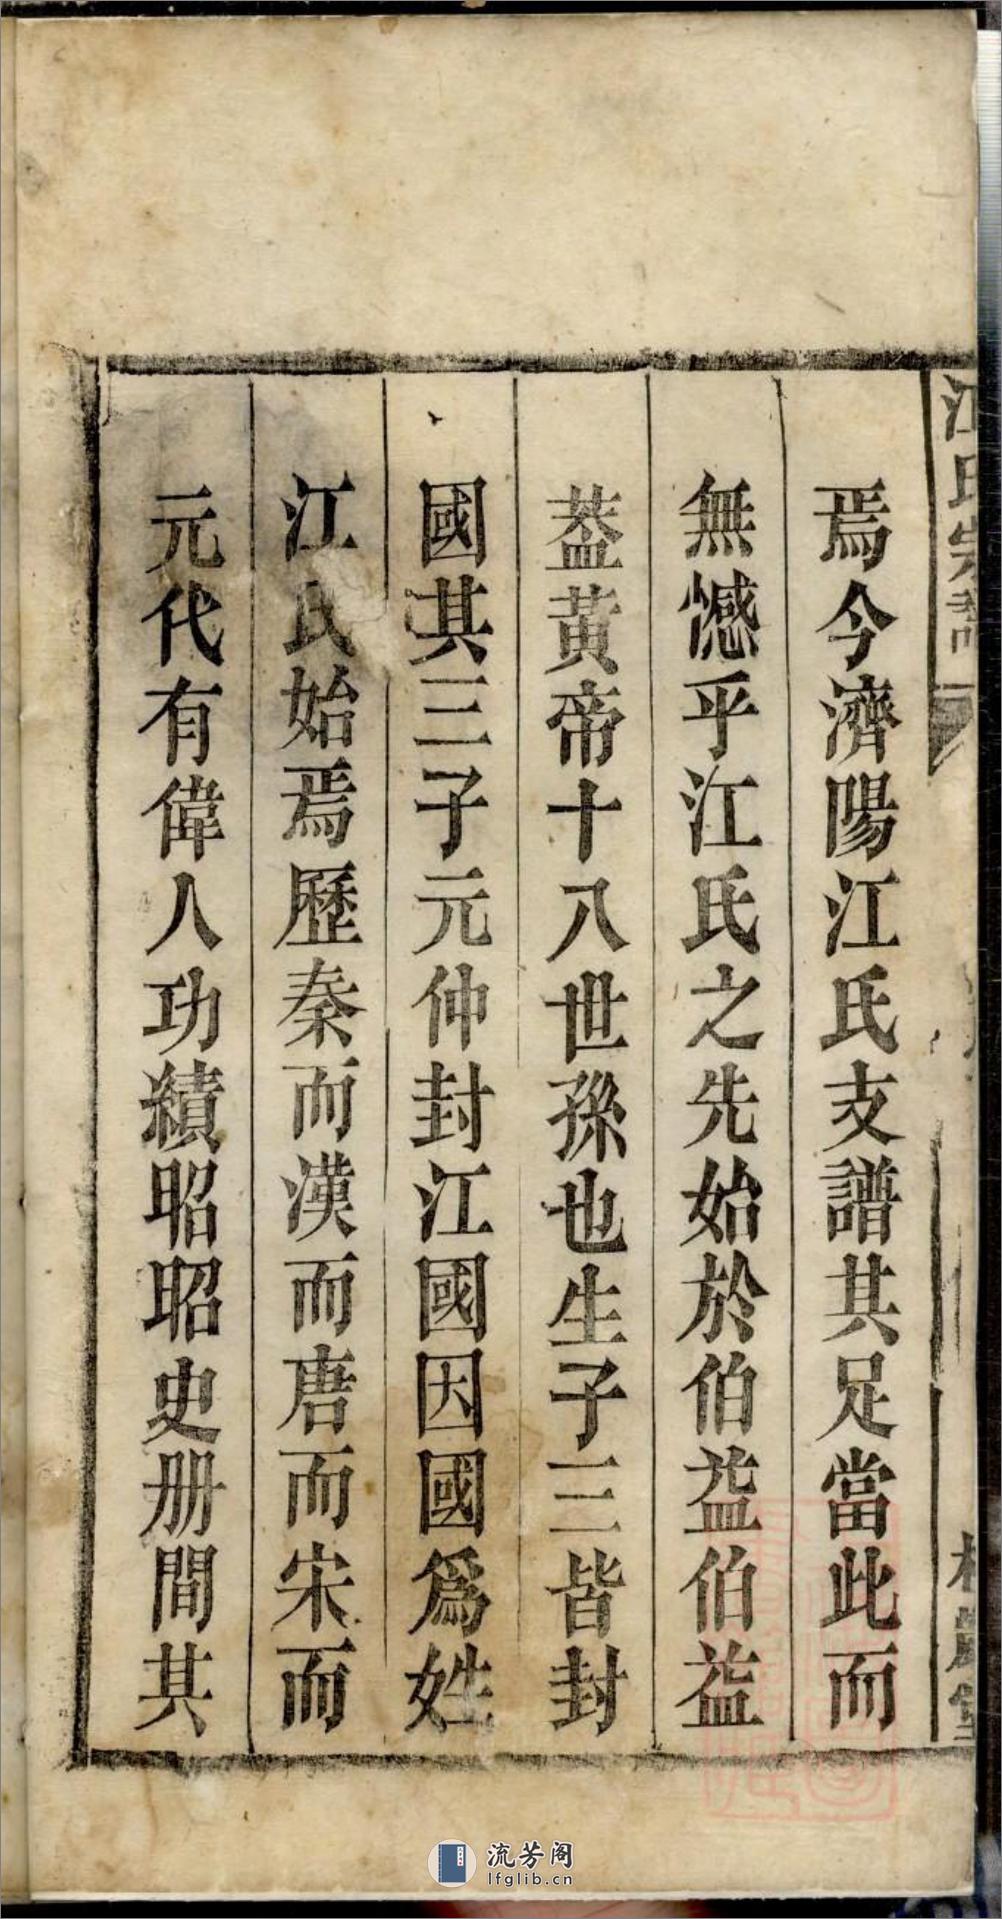 焉今濟陽江氏支譜其足當此而
無憾乎江氏之先始於伯益伯益
葢黃帝十八世孫也生子三皆封
國其三子元仲封江國因國爲姓
江氏始焉歷秦而漢而唐而宋而
元代有偉人功績昭昭史册間其
江氏宗譜
流芳阁
lfglib.cn